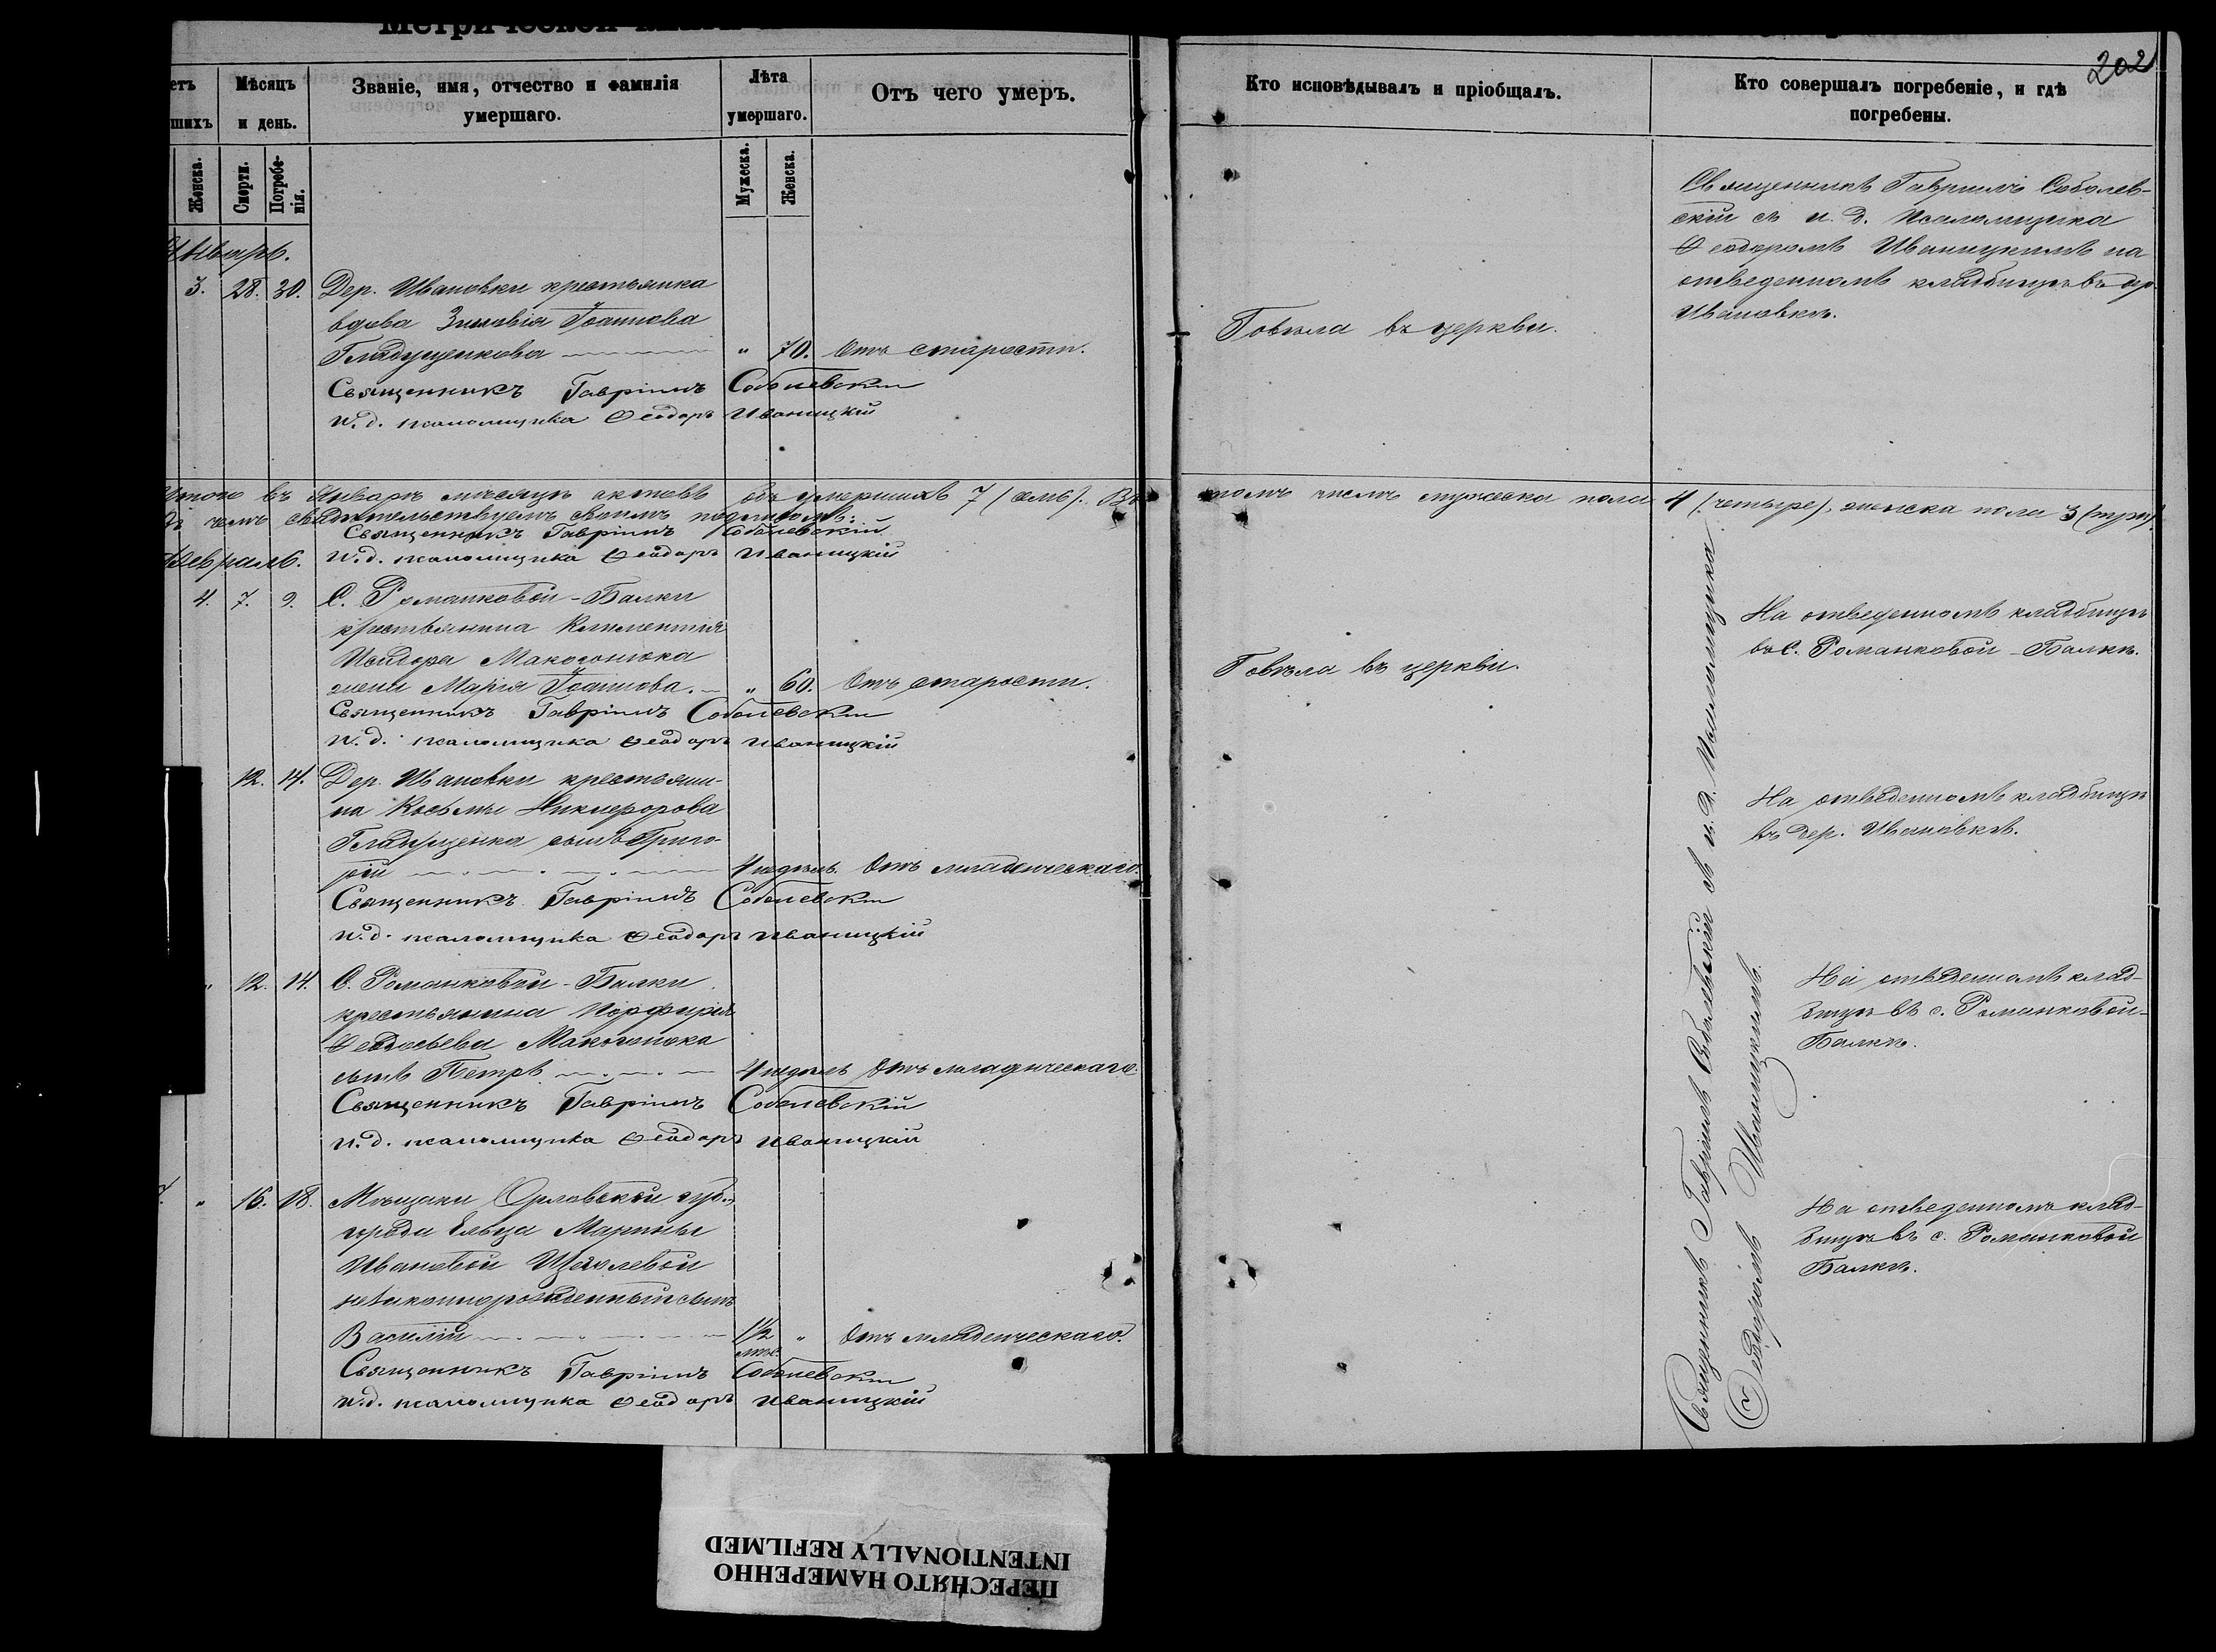 202
етъ
шихъ
Мѣсяцъ
и день.
Званіе, имя, отчество и фамилія
умершаго.
Лѣта
умершаго.
Отъ чего умеръ.
Кто исповѣдывалъ и пріобщалъ.
Кто совершалъ погребеніе, и гдѣ
погребены.
Женска.
Смерти.
Погребе-
нія.
Мужеска.
Женска.
Январь.
3. 28. 30. Дер. Ивановки крестьянка
вдова Зиновія Іоаннова
Гладущенкова " 70. Отъ старости.
Священникъ Гавріилъ Соболевскій
и.д. псаломщика Ѳеодоръ Иваницкій
Говѣла въ церкви.
Священникъ Гавріилъ Соболев-
скій съ и. д. псаломщика
Ѳеодоромъ Иваницкимъ на
отведенномъ кладбищѣ въ дер.
Ивановкѣ.
Итого въ Январѣ мѣсяцѣ актовъ объ умершихъ 7 (семь). Въ томъ числѣ мужеска пола 4 (четыре), женска пола 3 (три)
въ чемъ свидѣтельствуемъ своимъ подписомъ:
Священникъ Гавріилъ Соболевскій
и.д. псаломщика Ѳеодоръ Иваницкій
Февраль.
4. 7. 9. С. Романковой-Балки
крестьянина Климентія
Исидора Макогонюка
жена Марія Іоаннова. " 60. Отъ старости.
Священникъ Гавріилъ Соболевскій
и.д. псаломщика Ѳеодоръ Иваницкій
Говѣла въ церкви.
На отведенномъ кладбищѣ
въ С. Романковой-Балкѣ.
12. 14. Дер. Ивановки крестьяни-
на Косьмы Никифорова
Гладущенка сынъ Григо-
рій 4 недѣль. Отъ младенческаго.
Священникъ Гавріилъ Соболевскій
и.д. псаломщика Ѳеодоръ Иваницкій
На отведенномъ кладбищѣ
въ дер. Ивановкѣ.
" 12. 14. С. Романковой-Балки
крестьянина Порфирія
Ѳеодосьева Макогонюка
сынъ Петръ 4 недѣль Отъ младенческаго.
Священникъ Гавріилъ Соболевскій
и.д. псаломщика Ѳеодоръ Иваницкій
На отведенномъ клад-
бищѣ въ с. Романковой-
Балкѣ.
" 16. 18. Мѣщанки Орловской губ.,
города Ельца Марины
Ивановой
незаконнорожденный сынъ
Василій 1½ " Отъ младенческаго.
мѣс.
Священникъ Гавріилъ Соболевскій
и.д. псаломщика Ѳеодоръ Иваницкій
На отведенномъ клад-
бищѣ въ с. Романковой
Балкѣ.
Священникъ Гавріилъ Соболевскій съ и. д. Псаломщика
Ѳеодоромъ Иваницкимъ.
ПЕРЕСНЯТО НАМЕРЕННО
INTENTIONALLY REFILMED